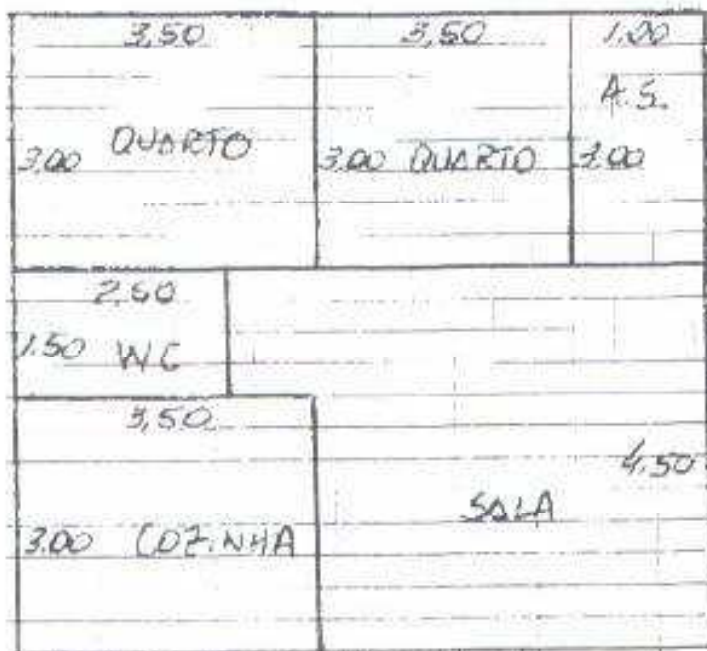 3,50
3,50
A.S.
3.00 QUARTO
3.00 QUARTO
2,50
1.50 WC
3,50
4.50
SALA
3.00 COZINHA